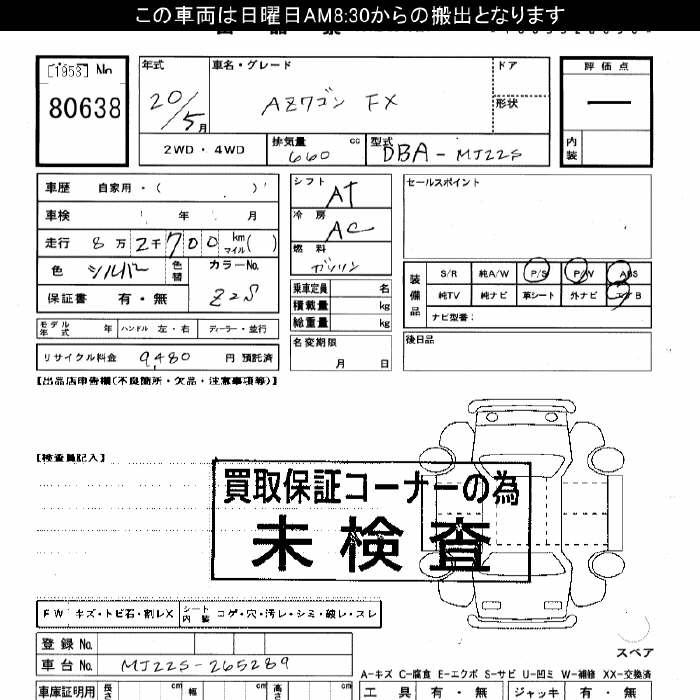 この車両は日曜日AM8:30からの搬出となります
[1953] No
80638
年式
20/5月
車名・グレード
AZワゴン FX
ドア
形状
評価点
—
内装
2WD・4WD
排気量 660 cc
型式 DBA-MJ22S
車歴 自家用・( )
車検 年 月
走行 8万2千700 km マイル( )
色 シルバー 色替
カラーNo. Z2S
保証書 有・無
モデル年式 年 ハンドル 左・右 ディーラー・並行
リサイクル料金 9,480 円 預託済
シフト AT
冷房 AC
燃料 ガソリン
乗車定員 名
積載量 kg
総重量 kg
名変期限
月 日
セールスポイント
装備品
S/R 純A/W P/S P/W ABS
純TV 純ナビ 革シート 外ナビ エアB
ナビ型番:
後日品
【出品店申告欄(不良箇所・欠品・注意事項等)】
【検査員記入】
買取保証コーナーの為
未検査
FW キズ・トビ石・割レX
シート内装 コゲ・穴・汚レ・シミ・破レ・スレ
登録 No.
車台 No. MJ22S-265289
スペア
A-キズ C-腐食 E-エクボ S-サビ U-凹ミ W-補修 XX-交換済
車庫証明用 長さ cm 幅 cm 高さ cm
工具 有・無 ジャッキ 有・無